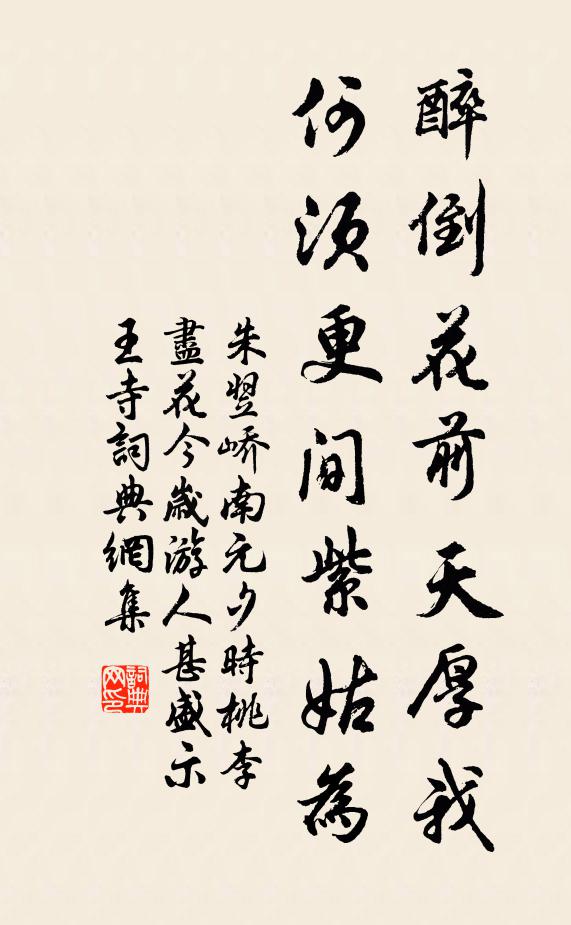 醉倒花前天厚我
何須更間紫姑為
朱翌嶠南元夕時桃李
盡花今歲游人甚盛示
王寺詞典網集
詞典网印